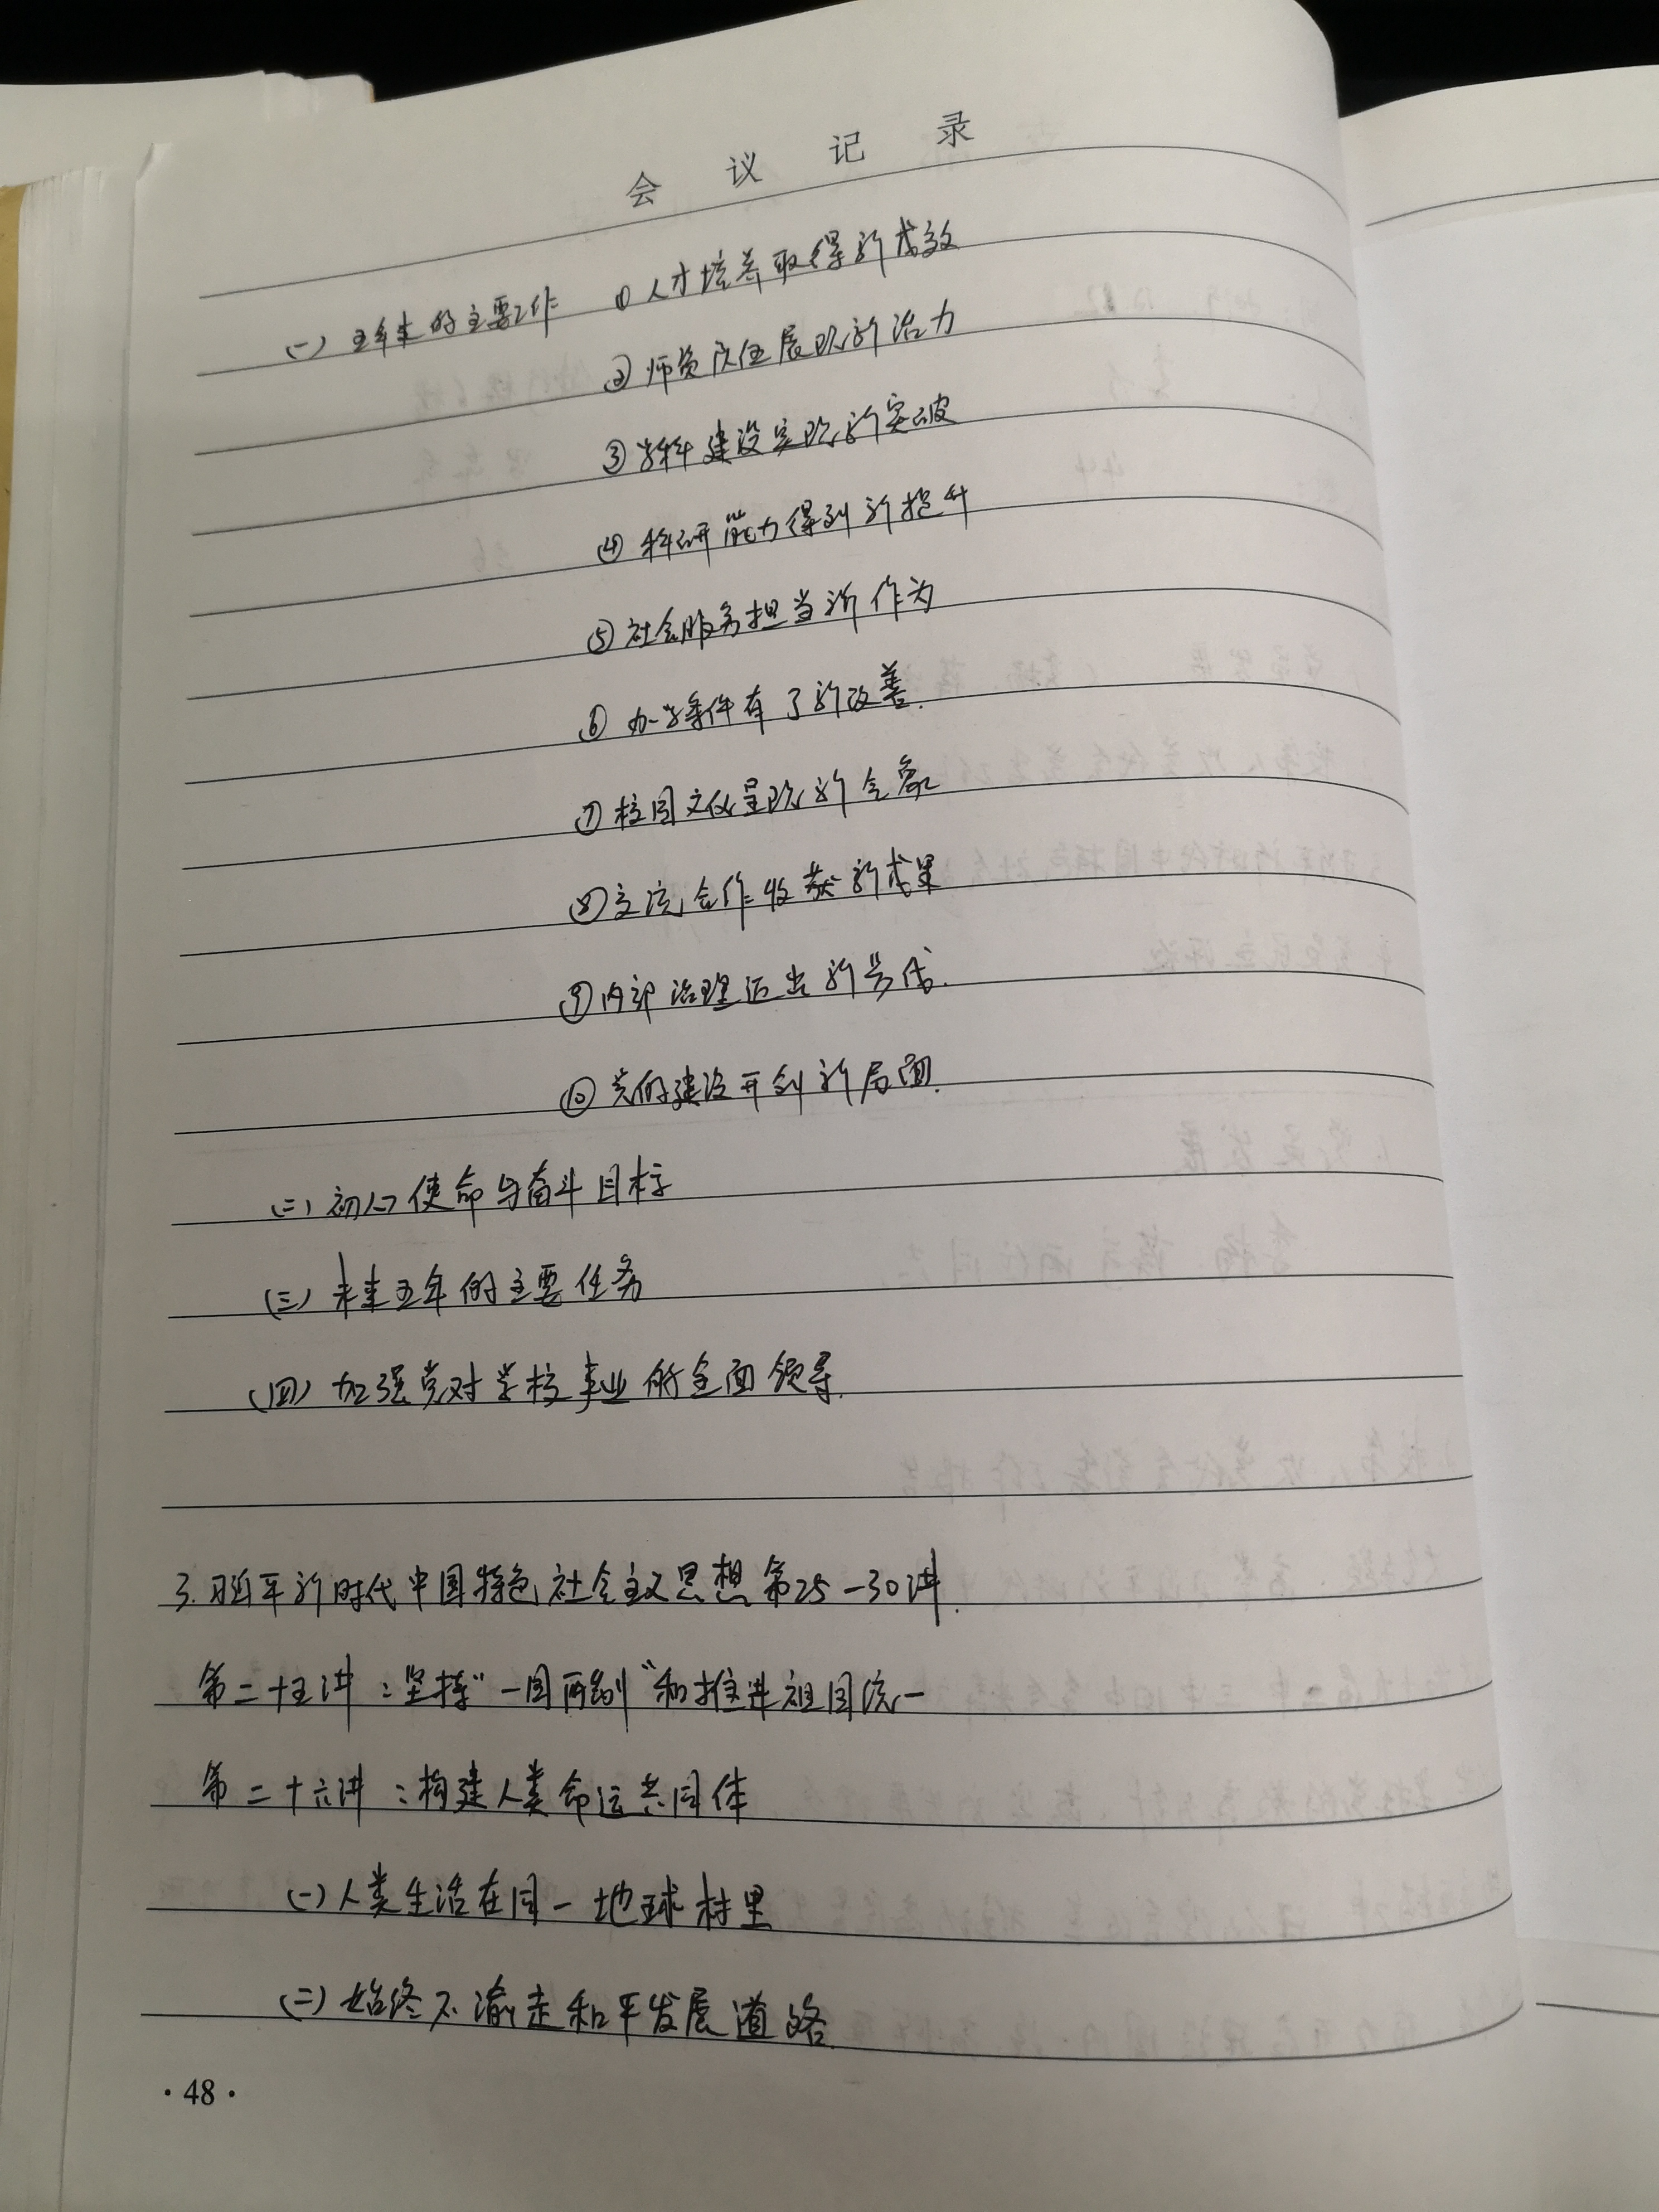 会议记录
(一) 五年来的主要工作 ①人才培养取得新成效
②师资队伍展现新活力
③学科建设实现新突破
④科研能力得到新提升
⑤社会服务担当新作为
⑥办学条件有了新改善.
⑦校园文化呈现新气象
⑧交流合作收获新成果
⑨内部治理迈出新步伐.
⑩党的建设开创新局面.
(二) 初心使命与奋斗目标
(三) 未来五年的主要任务
(四) 加强党对学校事业的全面领导.
3.习近平新时代中国特色社会主义思想第25-30讲.
第二十五讲：坚持“一国两制”和推进祖国统一
第二十六讲：构建人类命运共同体
(一) 人类生活在同一地球村里
(二) 始终不渝走和平发展道路.
·48·